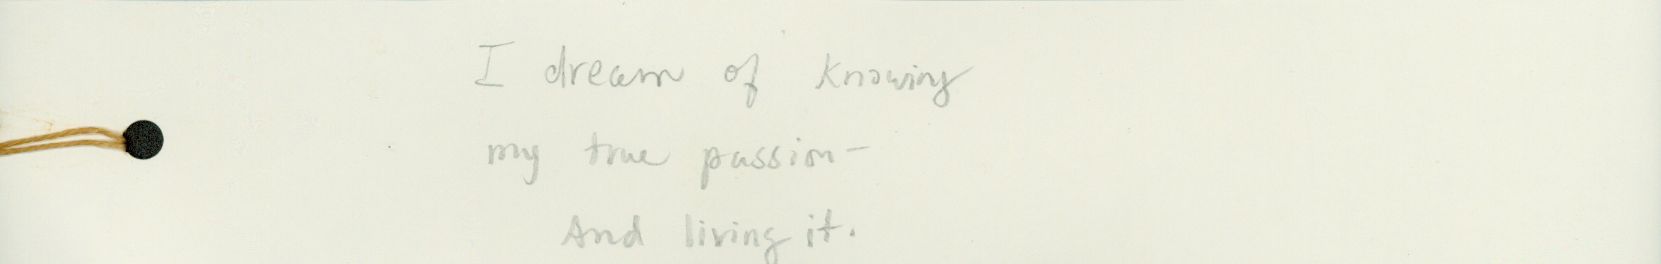 I dream of knowing
my true passion-
And living it.